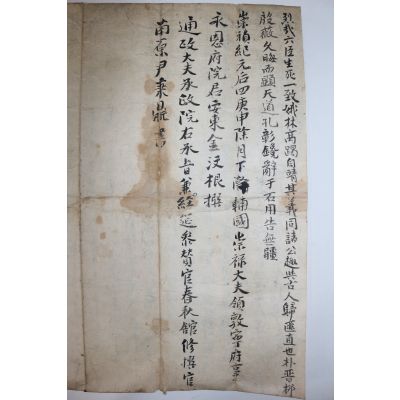 烈我六臣生死一致娥林高躅自靖其義同諸公趣與古人歸匯直也朴晋柳
殷微久晦而顯天道孔彰鐫辭于石用告無疆
崇禎紀元后四庚申除月下 輔國崇祿大夫領敦寧府事
永恩府院君安東金汶根撰
通政大夫承政院右承旨兼經筵叅贊官春秋館修撰官
南原尹秉